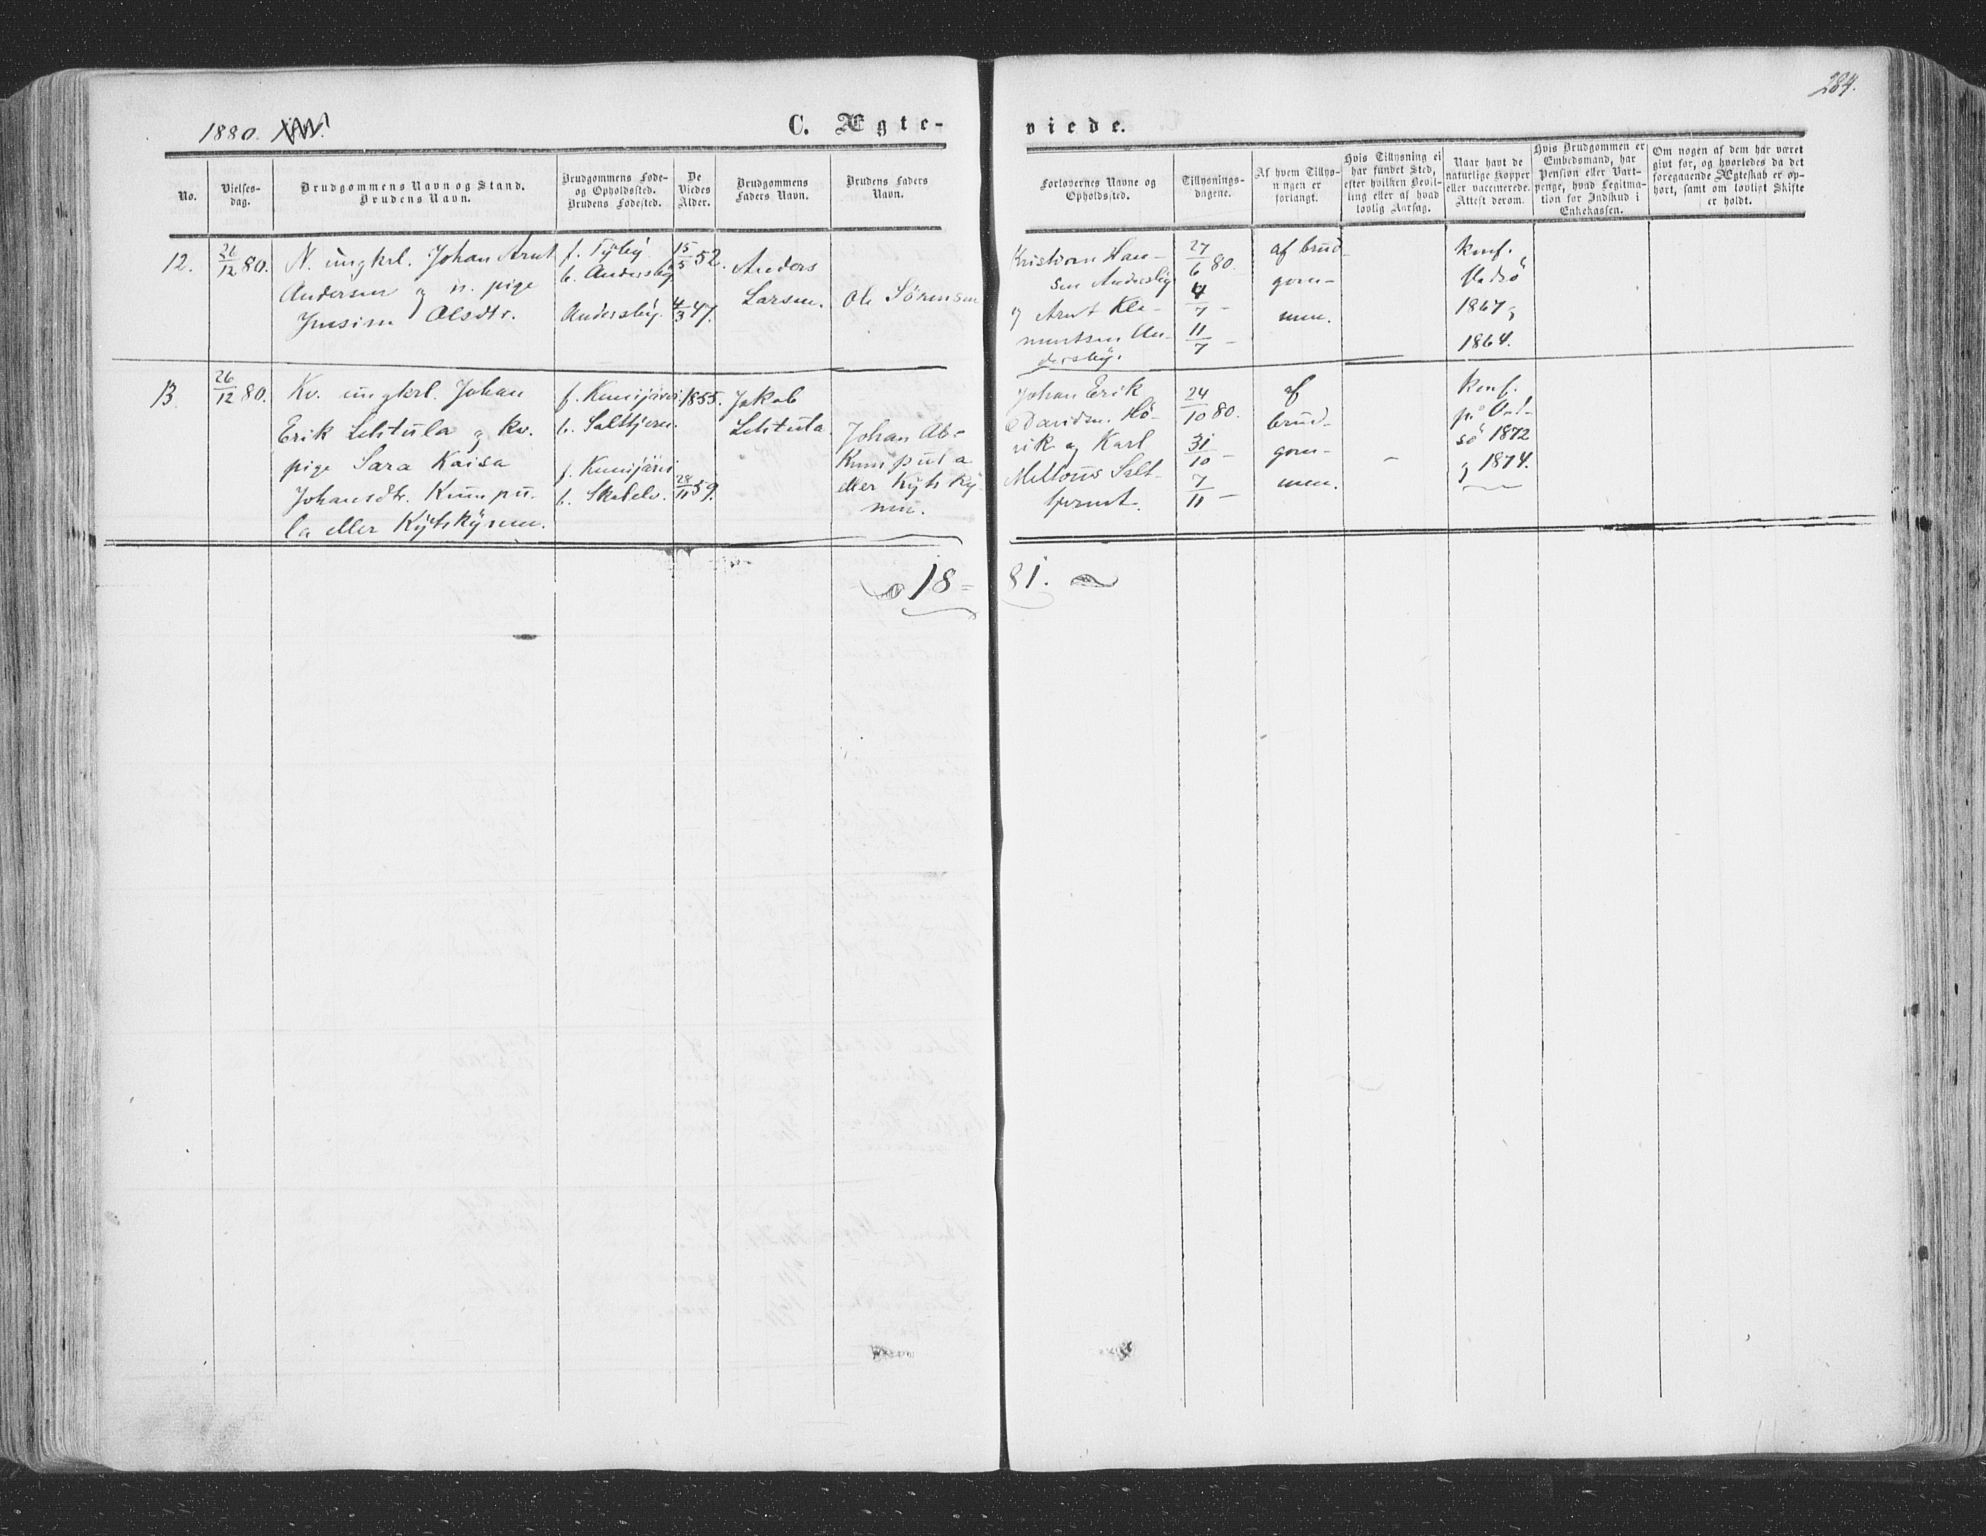 284.
1880.
C. Ægte-
viede.
No.
Vielses-
dag.
Brudgommens Navn og Stand.
Brudens Navn.
Brudgommens Føde-
og Opholdssted.
Brudens Fødested.
De
Viedes
Alder.
Brudgommens
Faders Navn.
Brudens Faders
Navn.
Forlovernes Navne og
Opholdssted.
Tillysnings-
dagene.
Af hvem Tillys-
ningen er
forlangt.
Hvis Tillysning ei
har fundet Sted,
efter hvilken Bevil-
ling eller af hvad
lovlig Aarsag.
Naar havt de
naturlige Kopper
eller vaccinerede.
Attest derom.
Hvis Brudgommen er
Embedsmand, har
Pension eller Vart-
penge, hvad Legitima-
tion for Indskud i
Enkekassen.
Om nogen af dem har været
gift før, og hvorledes da det
foregaaende Ægteskab er op-
hørt, samt om lovligt Skifte
er holdt.
12.
26/12 80.
N. ungkrl. Johan Arnt
Andersen og n. pige
Olsdtr.
f. Tyby
b. Andersby
Andersby.
15/5 52.
4/3 47.
Anders
Larsen.
Ole Sørensen
Kristian Han-
sen Andersby
og Arnt Kle-
mentsen An-
dersby.
27/6 80.
4/7 -
11/7 -
af brud-
gom-
men.
konf.
Vadsø
1867 og
1864.
13
26/12 80.
Kv. ungkrl. Johan
Erik Lehtula og kv.
pige Sara Kaisa
Johansdtr. Kumpu-
la eller Kytskynen.
f. Kemijärvi
b. Saltbjern.
f. Kemijärvi
b.
1855.
28/11 59.
Jakob
Lehtula.
Johan Ab-
Kumpula
eller Kytsky-
nen.
Johan Erik
Davidsen Hø-
vik og Karl
24/10 80.
31/10 -
7/11 -
af
brud-
gom-
men.
-
konf.
på Vad-
sø 1872
og 1874.
18-
81.